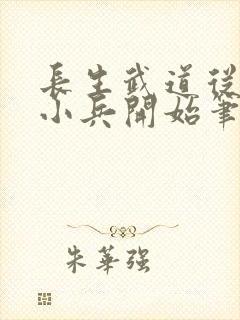 長生武道從
小兵開始筆
朱華強